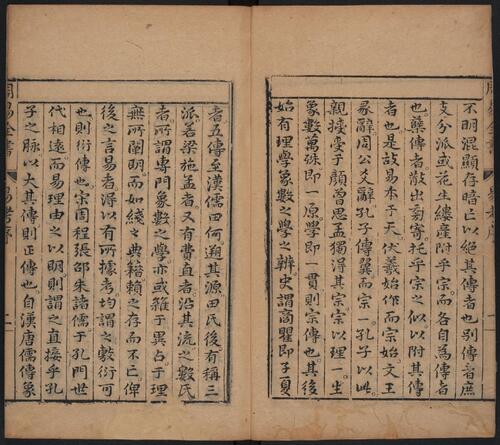 不明混顯存暗亡以絕其傳者也別傳者庶
支分派或花生縷産附乎宗而各自為傳者
也孽傳者散出旁寄托乎宗之似以附其傳
者也是故易本于天伏羲始作而宗始文王
彖辭周公爻辭孔子傳翼而宗一孔子以此
親授受于顏曾思孟獨得其宗宗以理一生
象數萬殊即一原學即一貫則宗傳也其後
始有理學象數之學之辨史謂商瞿即子夏
者五傳至漢儒田何遡其源田氏後有稱三
派若梁施孟者又有費直者沿其流之數氏
者所謂專門象數之學亦或雜于異占于理
無所闡明而如綫之典籍賴之存而不亡俾
後之言易者得以有所據考均謂之數衍可
也則衍傳也宋周程張邵朱諸儒于孔門世
代相遠而易理由之以明則謂之直接乎孔
子之脉以大其傳則正傳也自漢唐儒傳象
周易全書 易考序 二